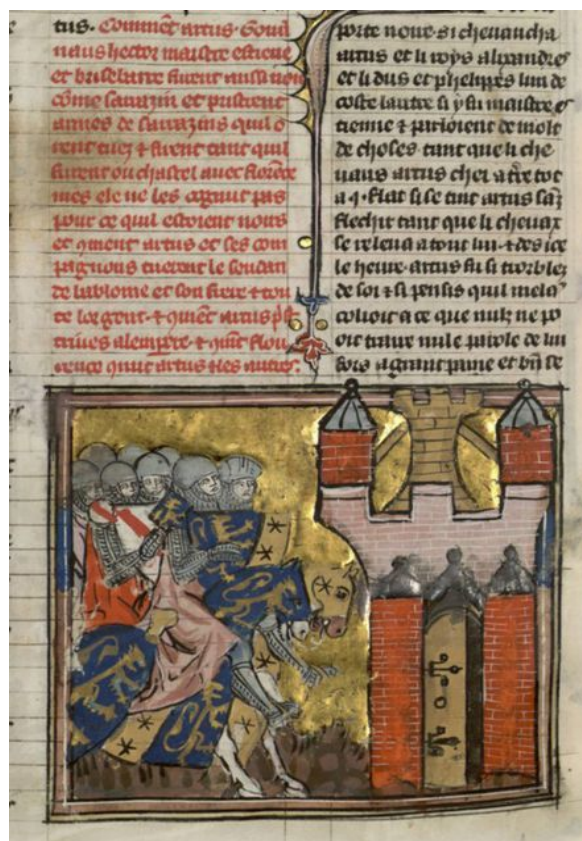 tus. Comment artus. Gouu
naus hector maistre estiene
et brisebarre furent aussi
côme sarrazin et pristrent
armes de sarrazins quil o
rent tuez & furent tant quil
furent ou chastel auec florẽce
mes ele ne les cognut pas
pour ce quil estoient noirs
et ꝯment artus et ses com
pagnons tuerent le soudan
de babiloine et son frere & tou
te lor gent. & ꝯmẽt artus pst
triues a lempere & ꝯmt flou
rence ꝯnut artus & les autres.
porte noue. si cheuaucha
artus et li roys alixandre
et li dus et phelippes lun de
coste lautre si y fu maistre es
tienne & parloient de molt
de choses tant que li che
uaus artus cheï a tre tot
a q. flat si se tint artus sãz
flechir tant que li cheuax
se releua a tout lui. & des ice
le heure. artus fu si trorblez
de soi & si pensis quil mela
colioit a ce que nulz ne po
oit traire nule parole de lui
fors a grant paine et bñ se